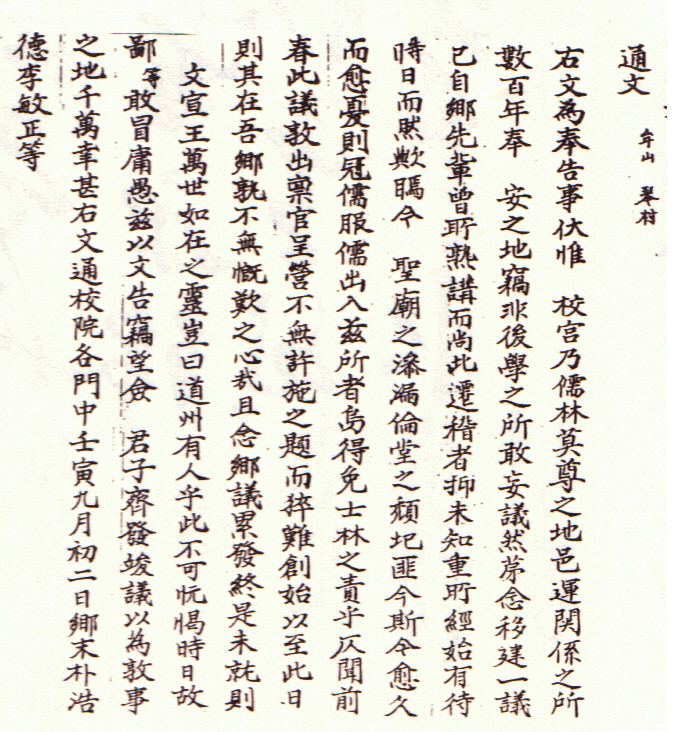 通文 牟山 琴村
右文為奉告事伏惟 校宮乃儒林莫尊之地邑運関係之所
數百年奉 安之地竊非後學之所敢妄議然苐念移建一議
已自鄉先輩曾所熟講而尚此遷稽者抑未知重所經始有待
時日而然歟噫今 聖廟之滲漏倫堂之頹圮匪今斯今愈久
而愈憂則冠儒服儒出入兹所者烏得免士林之責乎仄聞前
春此議敦出禀官呈營不無許施之題而猝難創始以至此日
則其在吾鄉孰不無慨歎之心哉且念鄉議累發終是未就則
文宣王萬世如在之靈豈曰道州有人乎此不可忨愒時日故
鄙等敢冒庸愚兹以文告竊望僉 君子齊發竣議以為敦事
之地千萬幸甚右文通校院各門中壬寅九月初二日鄉末朴浩
德李敏正等